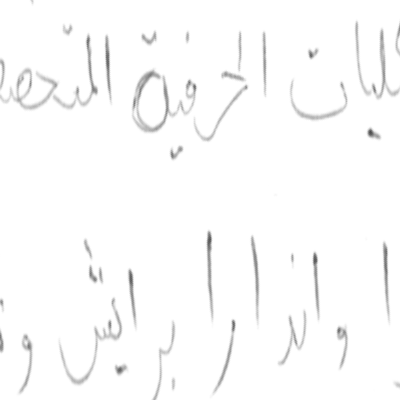 لبات الحرفية المتحص
ا وانذارا برايش و